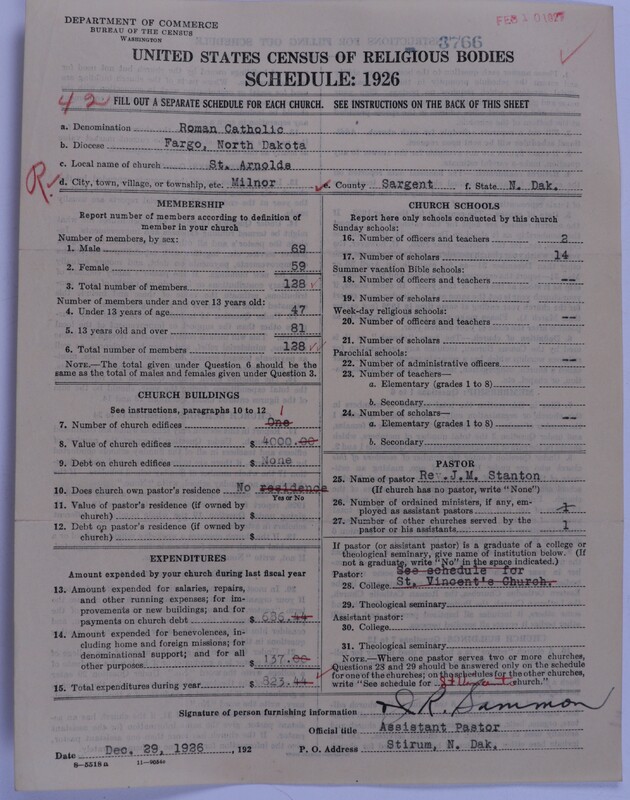 DEPARTMENT OF COMMERCE
BUREAU OF THE CENSUS
WASHINGTON
FEB 10 1927
3766
UNITED STATES CENSUS OF RELIGIOUS BODIES
SCHEDULE: 1926
42 FILL OUT A SEPARATE SCHEDULE FOR EACH CHURCH. SEE INSTRUCTIONS ON THE BACK OF THIS SHEET
a. Denomination Roman Catholic
b. Diocese Fargo, North Dakota
c. Local name of church St. Arnolds
R. d. City, town, village, or township, etc. Milnor e. County Sargent f. State N. Dak.
MEMBERSHIP
Report number of members according to definition of
member in your church
Number of members, by sex:
1. Male 69
2. Female 59
3. Total number of members 128
Number of members under and over 13 years old:
4. Under 13 years of age 47
5. 13 years old and over 81
6. Total number of members 128
NOTE.—The total given under Question 6 should be the
same as the total of males and females given under Question 3.
CHURCH BUILDINGS
See instructions, paragraphs 10 to 12
1
7. Number of church edifices One
8. Value of church edifices $ 4000.00
9. Debt on church edifices $ None
10. Does church own pastor's residence No residence
Yes or No
11. Value of pastor's residence (if owned by
church) $
12. Debt on pastor's residence (if owned by
church) $
EXPENDITURES
Amount expended by your church during last fiscal year
13. Amount expended for salaries, repairs,
and other running expenses; for im-
provements or new buildings; and for
payments on church debt $ 686.44
14. Amount expended for benevolences, in-
cluding home and foreign missions; for
denominational support; and for all
other purposes $ 137.00
15. Total expenditures during year $ 823.44
CHURCH SCHOOLS
Report here only schools conducted by this church
Sunday schools:
16. Number of officers and teachers 2
17. Number of scholars 14
Summer vacation Bible schools:
18. Number of officers and teachers --
19. Number of scholars
Week-day religious schools:
20. Number of officers and teachers --
21. Number of scholars
Parochial schools:
22. Number of administrative officers --
23. Number of teachers—
a. Elementary (grades 1 to 8)
b. Secondary
24. Number of scholars— --
a. Elementary (grades 1 to 8)
b. Secondary
PASTOR
25. Name of pastor Rev.J.M. Stanton
(If church has no pastor, write "None")
26. Number of ordained ministers, if any, em-
ployed as assistant pastors 1
27. Number of other churches served by the
pastor or his assistants 1
If pastor (or assistant pastor) is a graduate of a college or
theological seminary, give name of institution below. (If
not a graduate, write "No" in the space indicated.)
Pastor: See schedule for
28. College St. Vincent's Church.
29. Theological seminary
Assistant pastor:
30. College
31. Theological seminary
NOTE.—Where one pastor serves two or more churches,
Questions 28 and 29 should be answered only on the schedule
for one of the churches; on the schedules for the other churches,
write "See schedule for St Vincent church."
Signature of person furnishing information
Official title Assistant Pastor
Date Dec. 29, 1926, 192 P. O. Address Stirum, N. Dak.
8-5518 a